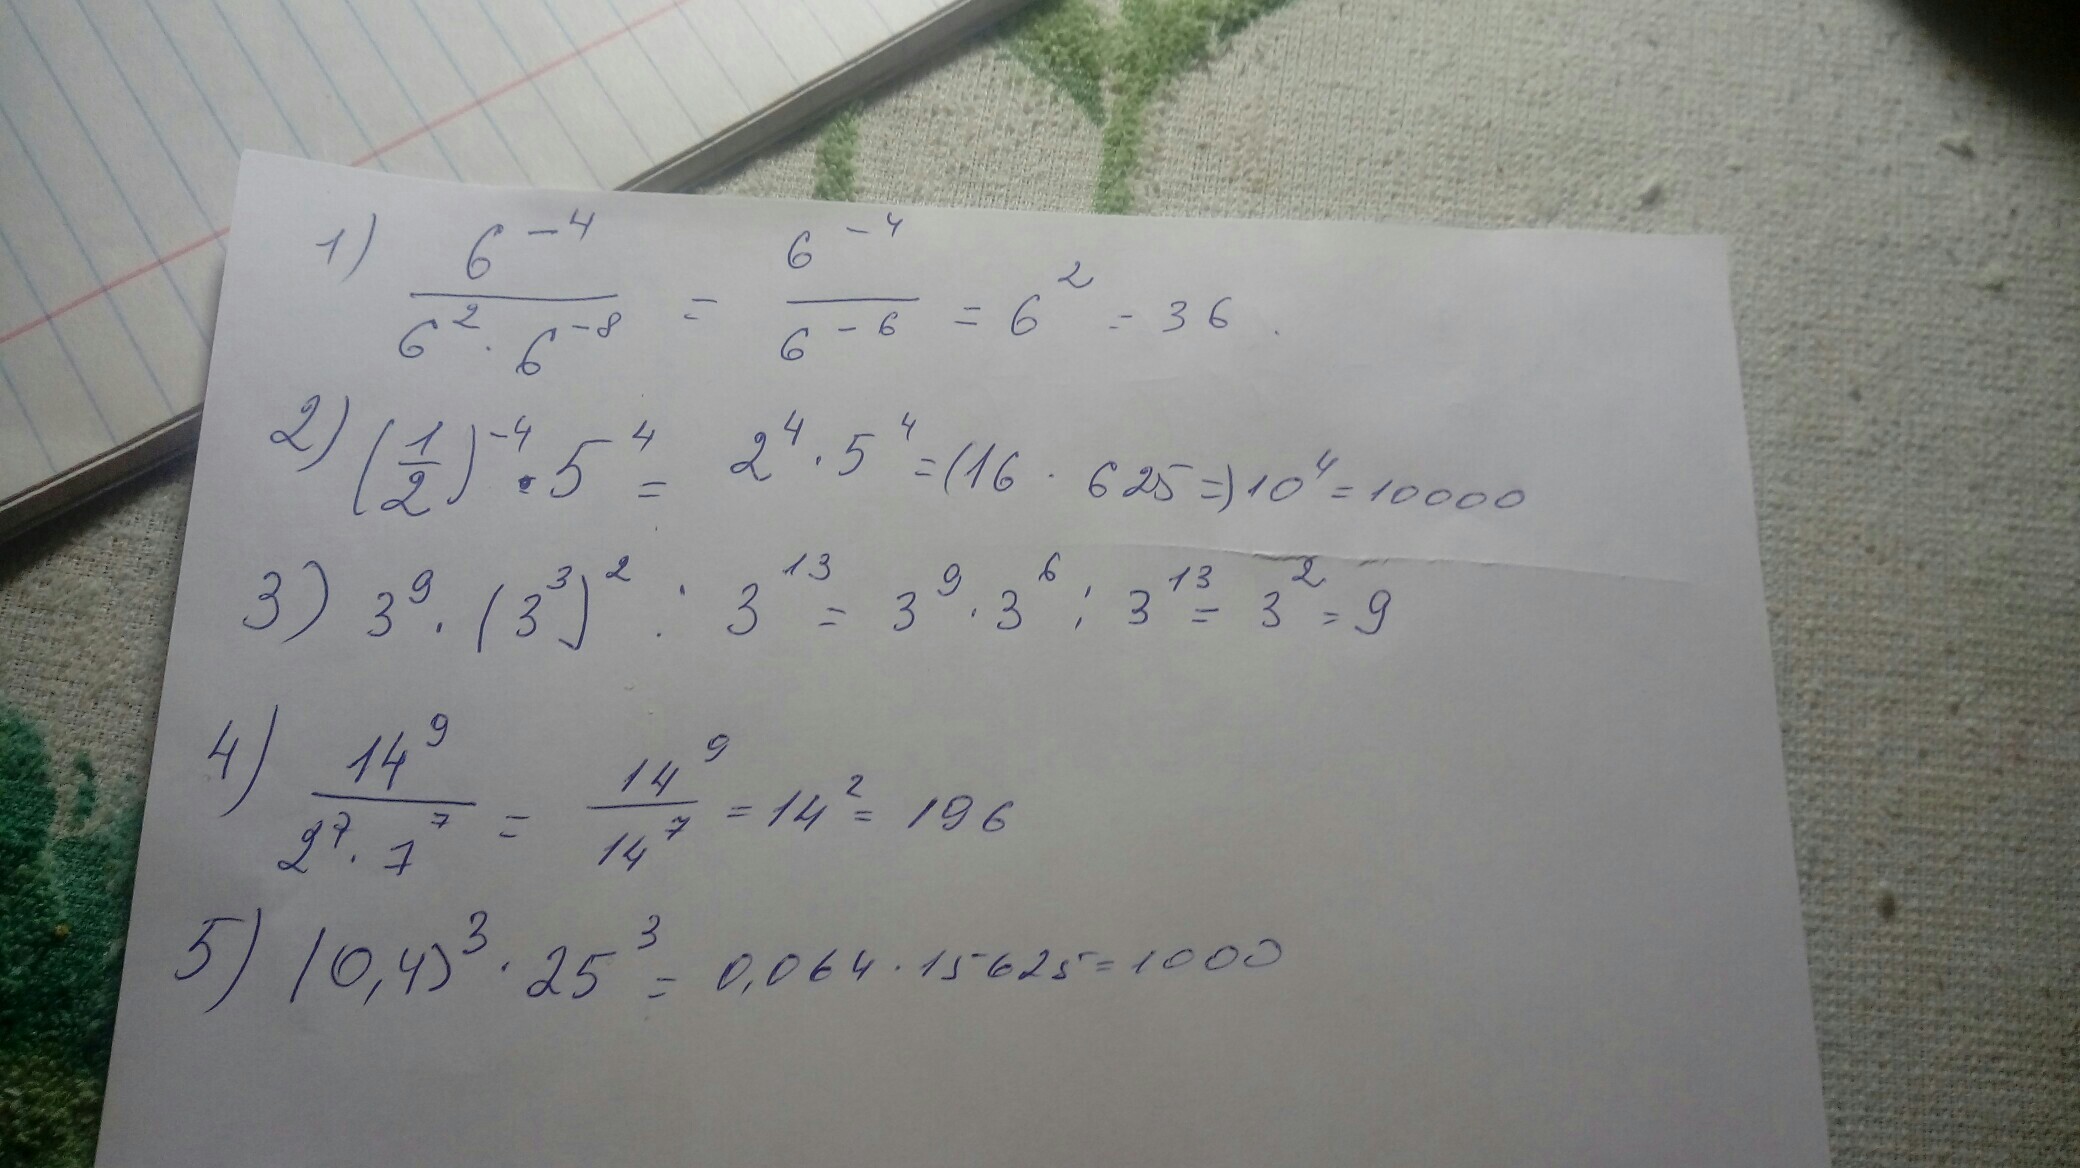 1) 6^-4 / (6^2 · 6^-8) = 6^-4 / 6^-6 = 6^2 = 36.
2) (1/2)^-4 · 5^4 = 2^4 · 5^4 = (16 · 625 =) 10^4 = 10000
3) 3^9 · (3^3)^2 : 3^13 = 3^9 · 3^6 : 3^13 = 3^2 = 9
4) 14^9 / (2^7 · 7^7) = 14^9 / 14^7 = 14^2 = 196
5) (0,4)^3 · 25^3 = 0,064 · 15625 = 1000